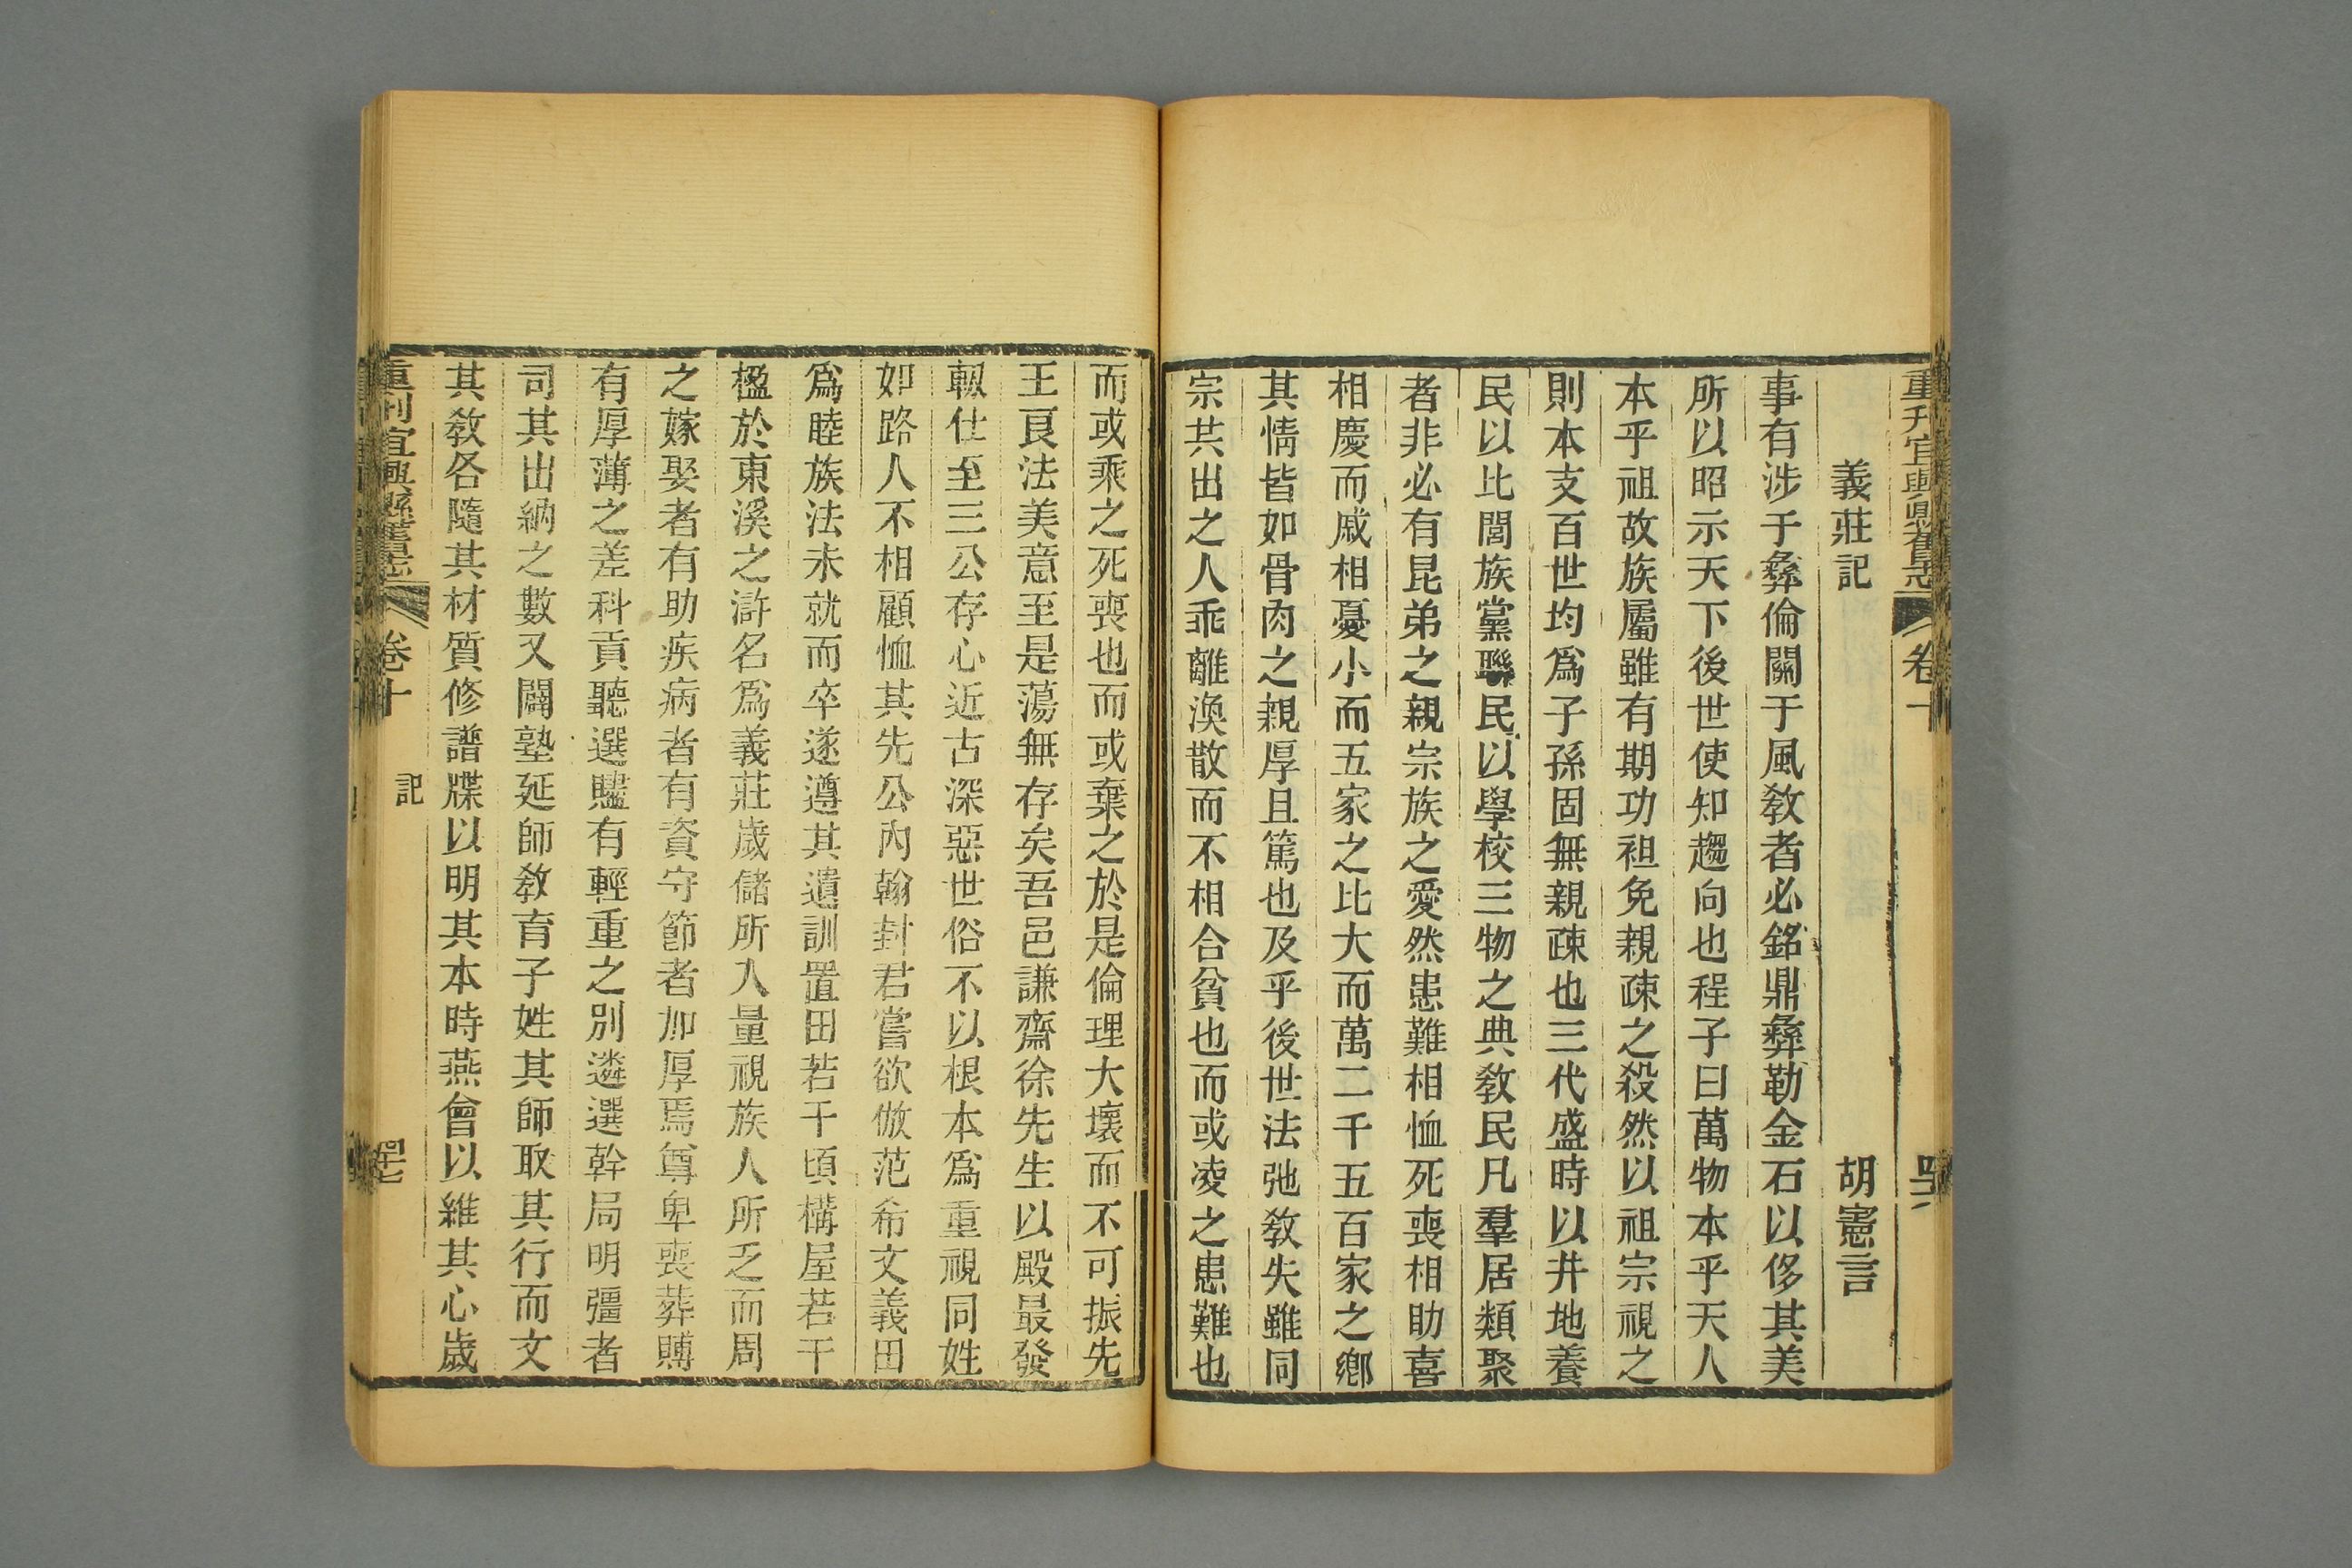 重刋宜興縣舊志 卷十
義莊記 胡憲言
事有涉于彝倫關于風敎者必銘鼎彝勒金石以侈其美
所以昭示天下後世使知趨向也程子曰萬物本乎天人
本乎祖故族屬雖有期功袒免親疎之殺然以祖宗視之
則本支百世均爲子孫固無親疎也三代盛時以井地養
民以比閭族黨聯民以學校三物之典敎民凡羣居類聚
者非必有昆弟之親宗族之愛然患難相恤死喪相助喜
相慶而戚相憂小而五家之比大而萬二千五百家之鄉
其情皆如骨肉之親厚且篤也及乎後世法弛敎失雖同
宗共出之人乖離渙散而不相合貧也而或凌之患難也
而或乘之死喪也而或棄之於是倫理大壞而不可振先
王良法美意至是蕩無存矣吾邑謙齋徐先生以殿最發
軔仕至三公存心近古深惡世俗不以根本爲重視同姓
如路人不相顧恤其先公內翰封君嘗欲倣范希文義田
爲睦族法未就而卒遂遵其遺訓置田若干頃構屋若干
楹於東溪之滸名爲義莊歲儲所入量視族人所乏而周
之嫁娶者有助疾病者有資守節者加厚焉尊卑喪葬賻
有厚薄之差科貢聽選贐有輕重之別遴選幹局明彊者
司其出納之數又闢塾延師敎育子姓其師取其行而文
其敎各隨其材質修譜牒以明其本時燕會以維其心歲
重刋宜興縣舊志 卷十 記